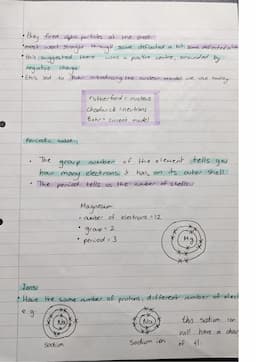 • they fired alpha particles at the sheet.
• most went straight through some deflected a bit, some deflected
• this suggested there was a positive centre, surrounded by
negative charge
• this led to introducing the nuclear model we use today
rutherford = nucleus
chadwick = neutrons
Bohr = current model
Periodic table:
• The group number of the element tells you
how many electrons it has on its outer shell
• The period tells us the number of shells.
Magnesium
- number of electrons = 12
• group = 2
• period = 3
Mg
Ions:
• Have the same number of protons, different number of
e.g.
Na
Na
this sodium ion
will have a
sodium
sodium ion
of +1.